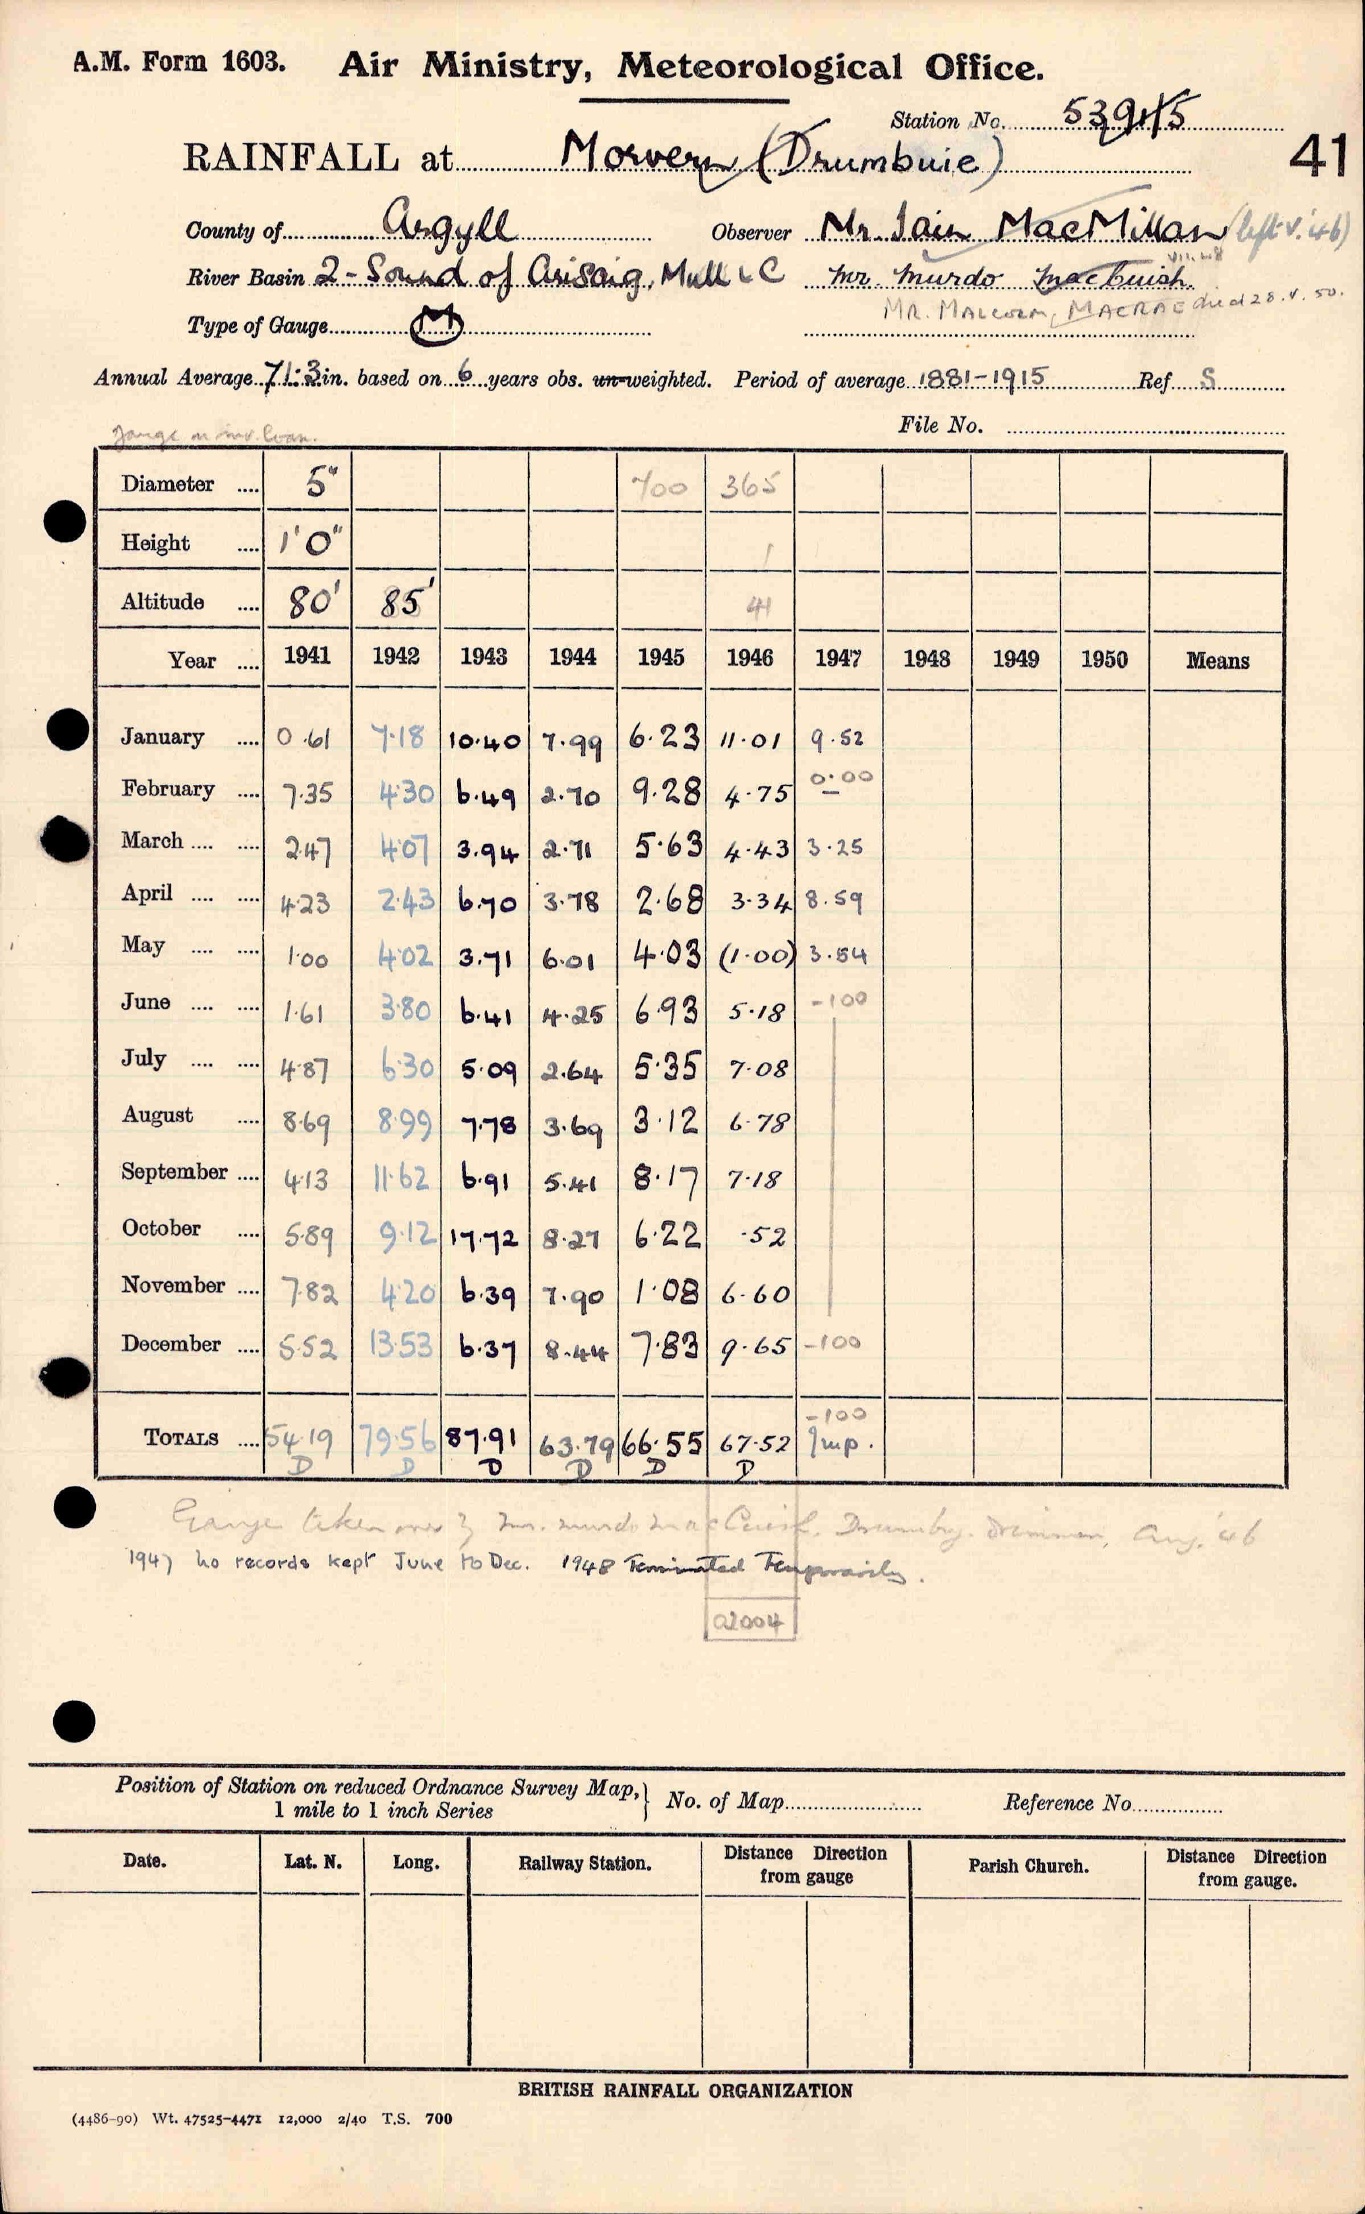 A.M. Form 1603. Air Ministry, Meteorological Office.
Station No. 539
41
RAINFALL at Morvern (Drumbuie)
County of Argyll Observer Mr. Iain MacMillan (left V. '46)
River Basin 2 - Sound of Arisaig, Mull & C Mr. Murdo MacCuish.
Type of Gauge M MR. MALCOLM MACRAE died 28.V.50.
Annual Average 71.3 in. based on 6 years obs. un-weighted. Period of average 1881-1915 Ref S
File No.
Diameter .... 5" 700 365
Height .... 1'0" 1
Altitude .... 80' 85' 41
Year .... 1941 1942 1943 1944 1945 1946 1947 1948 1949 1950 Means
January .... 0.61 7.18 10.40 7.99 6.23 11.01 9.52
February .... 7.35 4.30 6.49 2.70 9.28 4.75 0.00
March .... .... 2.47 4.07 3.94 2.71 5.63 4.43 3.25
April .... .... 4.23 2.43 6.70 3.78 2.68 3.34 8.59
May .... .... 1.00 4.02 3.71 6.01 4.03 (1.00) 3.54
June .... .... 1.61 3.80 6.41 4.25 6.93 5.18 -100
July .... .... 4.87 6.30 5.09 2.64 5.35 7.08
August .... 8.69 8.99 7.78 3.69 3.12 6.78
September .... 4.13 11.62 6.91 5.41 8.17 7.18
October .... 5.89 9.12 17.72 8.27 6.22 .52
November .... 7.82 4.20 6.39 7.90 1.08 6.60
December .... 5.52 13.53 6.37 8.44 7.83 9.65 -100
-100
TOTALS .... 54.19 79.56 87.91 63.79 66.55 67.52 Imp.
D D D D D D
Gauge taken over by Mr. Murdo MacCuish, Drimnin, Aug. '46
1947 no records kept June to Dec. 1948 Terminated Temporarily.
a2004
Position of Station on reduced Ordnance Survey Map, 1 mile to 1 inch Series } No. of Map Reference No.
Date. Lat. N. Long. Railway Station. Distance Direction from gauge Parish Church. Distance Direction from gauge.
BRITISH RAINFALL ORGANIZATION
(4486-90) Wt. 47525-4471 12,000 2/40 T.S. 700